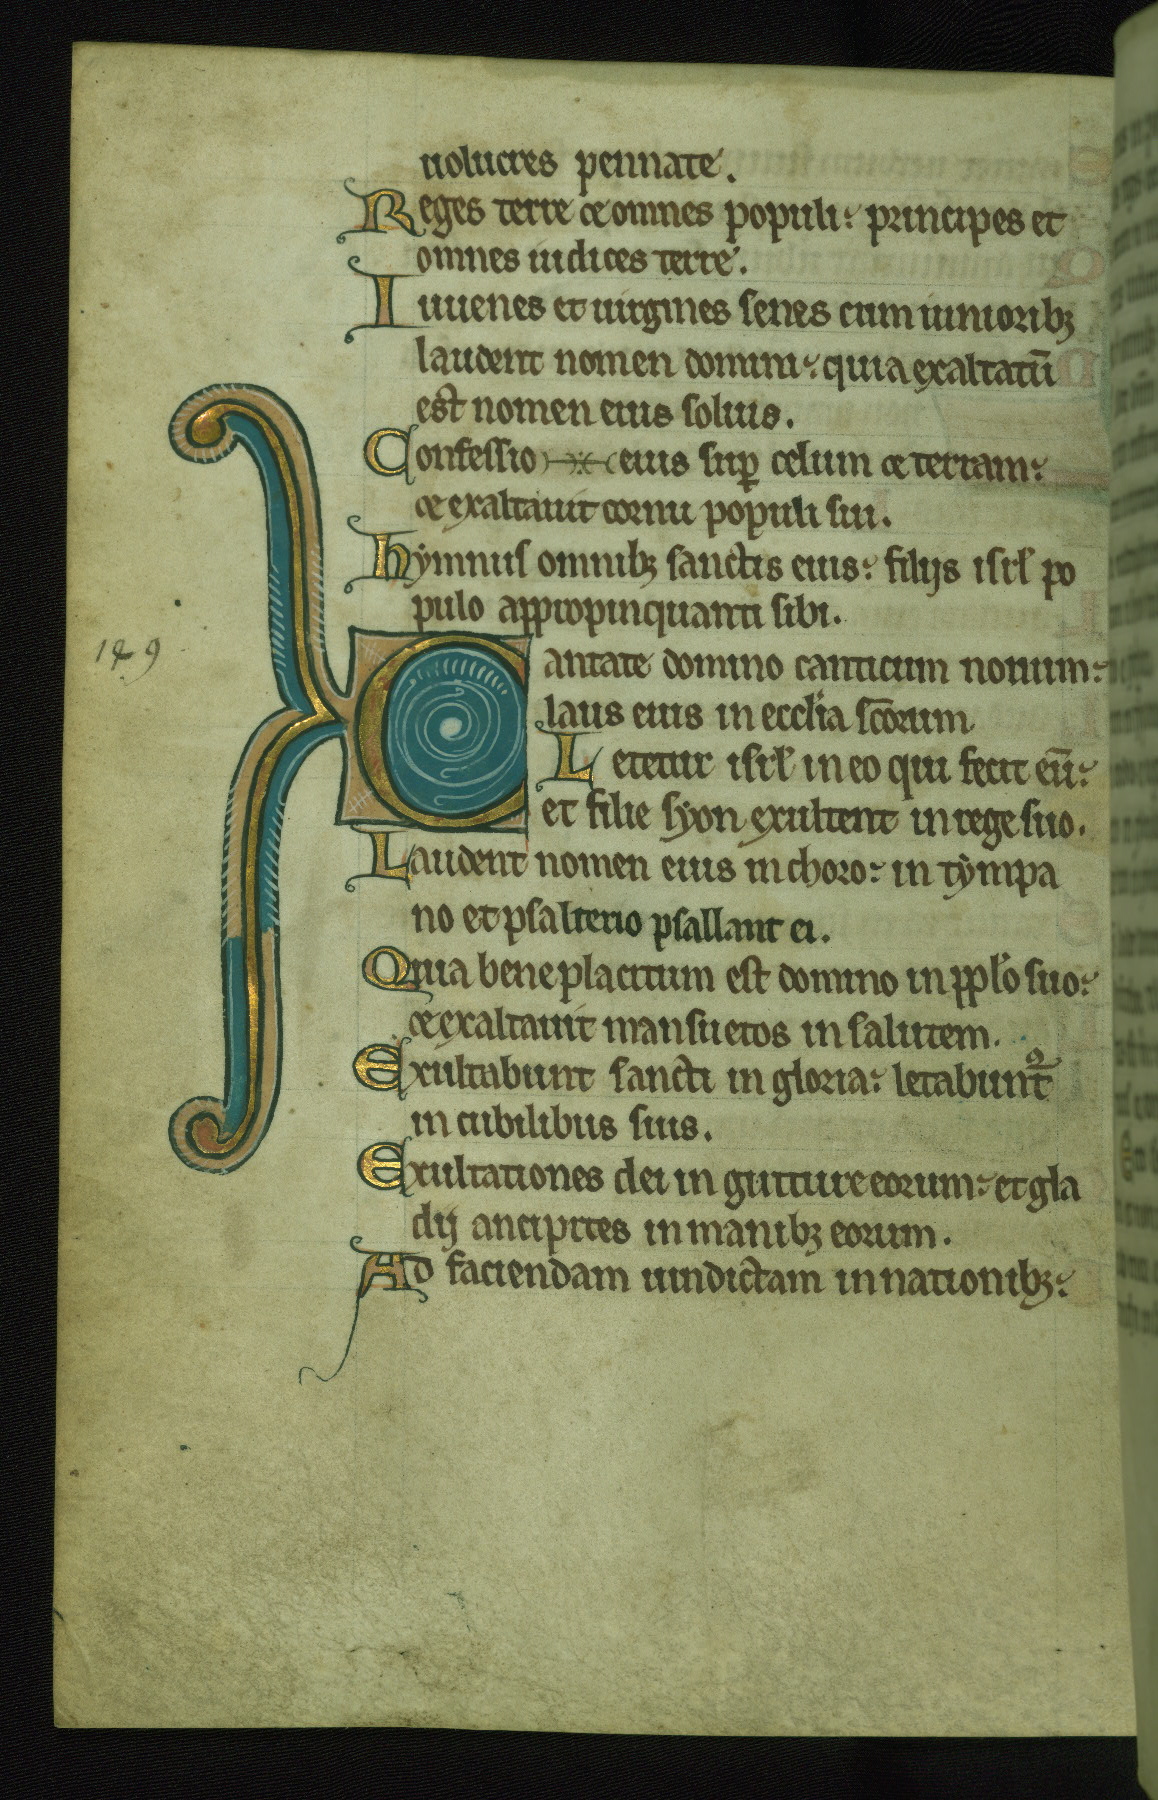 uolucres pennate.
Reges terre & omnes populi: principes et
omnes iudices terre.
Iuuenes et uirgines senes cum iuniorib;
laudent nomen domini: quia exaltatū
est nomen eius solius.
Confessio eius sup celum & terram:
& exaltauit cornu populi sui.
Hymnus omnib; sanctis eius: filijs isrl po
pulo appropinquanti sibi.
149
Cantate domino canticum nouum:
laus eius in ecclia scorum
Letetur isrl in eo qui fecit eū:
et filie syon exultent in rege suo.
Laudent nomen eius in choro: in tympa
no et psalterio psallant ei.
Quia beneplacitum est domino in pplo suo:
& exaltauit mansuetos in salutem.
Exultabunt sancti in gloria: letabunt
in cubilibus suis.
Exultationes dei in gutture eorum: et gla
dij ancipites in manib; eorum.
Ad faciendam uindictam in nationib;: